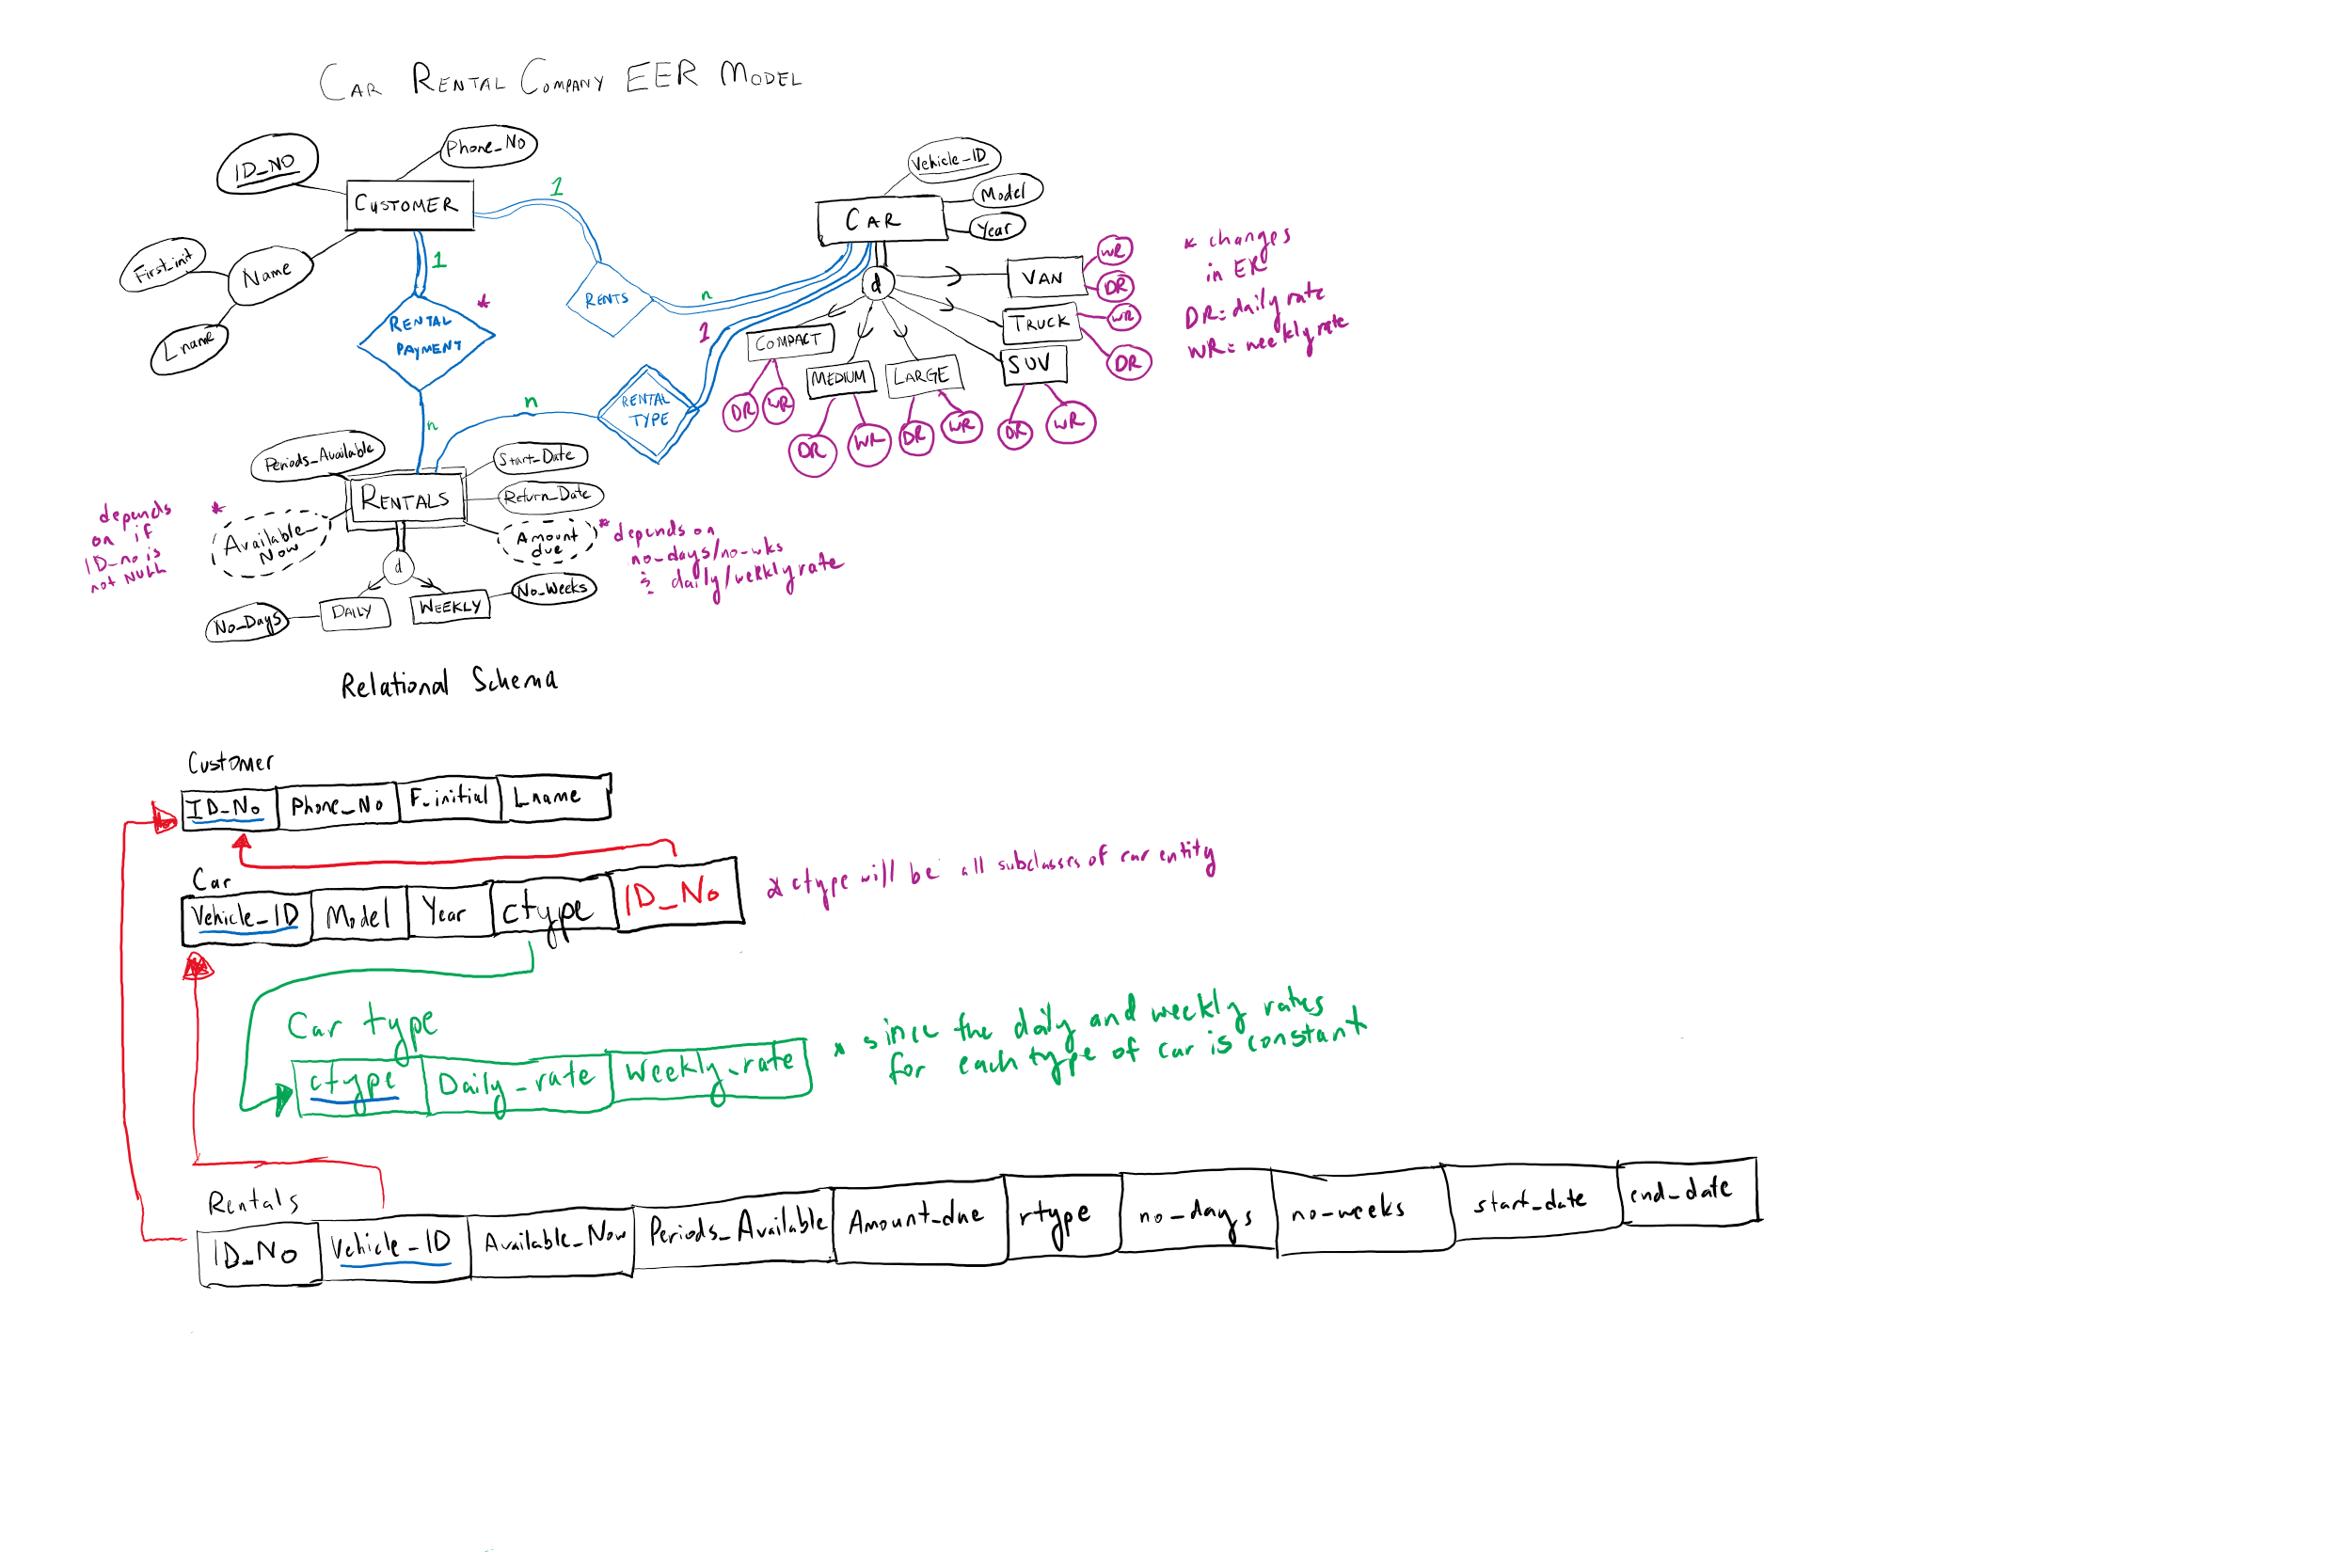 CAR RENTAL COMPANY EER MODEL
ID_NO
Phone_No
CUSTOMER
First_init
Name
Lname
1
1
RENTAL
PAYMENT
*
n
RENTS
n
1
n
RENTAL
TYPE
Vehicle_ID
Model
Year
CAR
d
VAN
WR
DR
TRUCK
WR
DR
SUV
DR
WR
COMPACT
DR
WR
MEDIUM
DR
WR
LARGE
DR
WR
* changes
in ER
DR= daily rate
WR= weekly rate
Periods_Available
Start_Date
RENTALS
Return_Date
Available_
Now
Amount
due
* depends on
no_days/no-wks
& daily/weekly rate
depends *
on if
ID_no is
not NULL
d
DAILY
WEEKLY
No_Days
No_Weeks
Relational Schema
Customer
ID_No Phone_No F_initial Lname
Car
Vehicle_ID Model Year ctype ID_No
* ctype will be all subclasses of car entity
Car type
ctype Daily_rate Weekly_rate
* since the daily and weekly rates
for each type of car is constant
Rentals
ID_No Vehicle_ID Available_Now Periods_Available Amount_due rtype no_days no-weeks start_date end_date